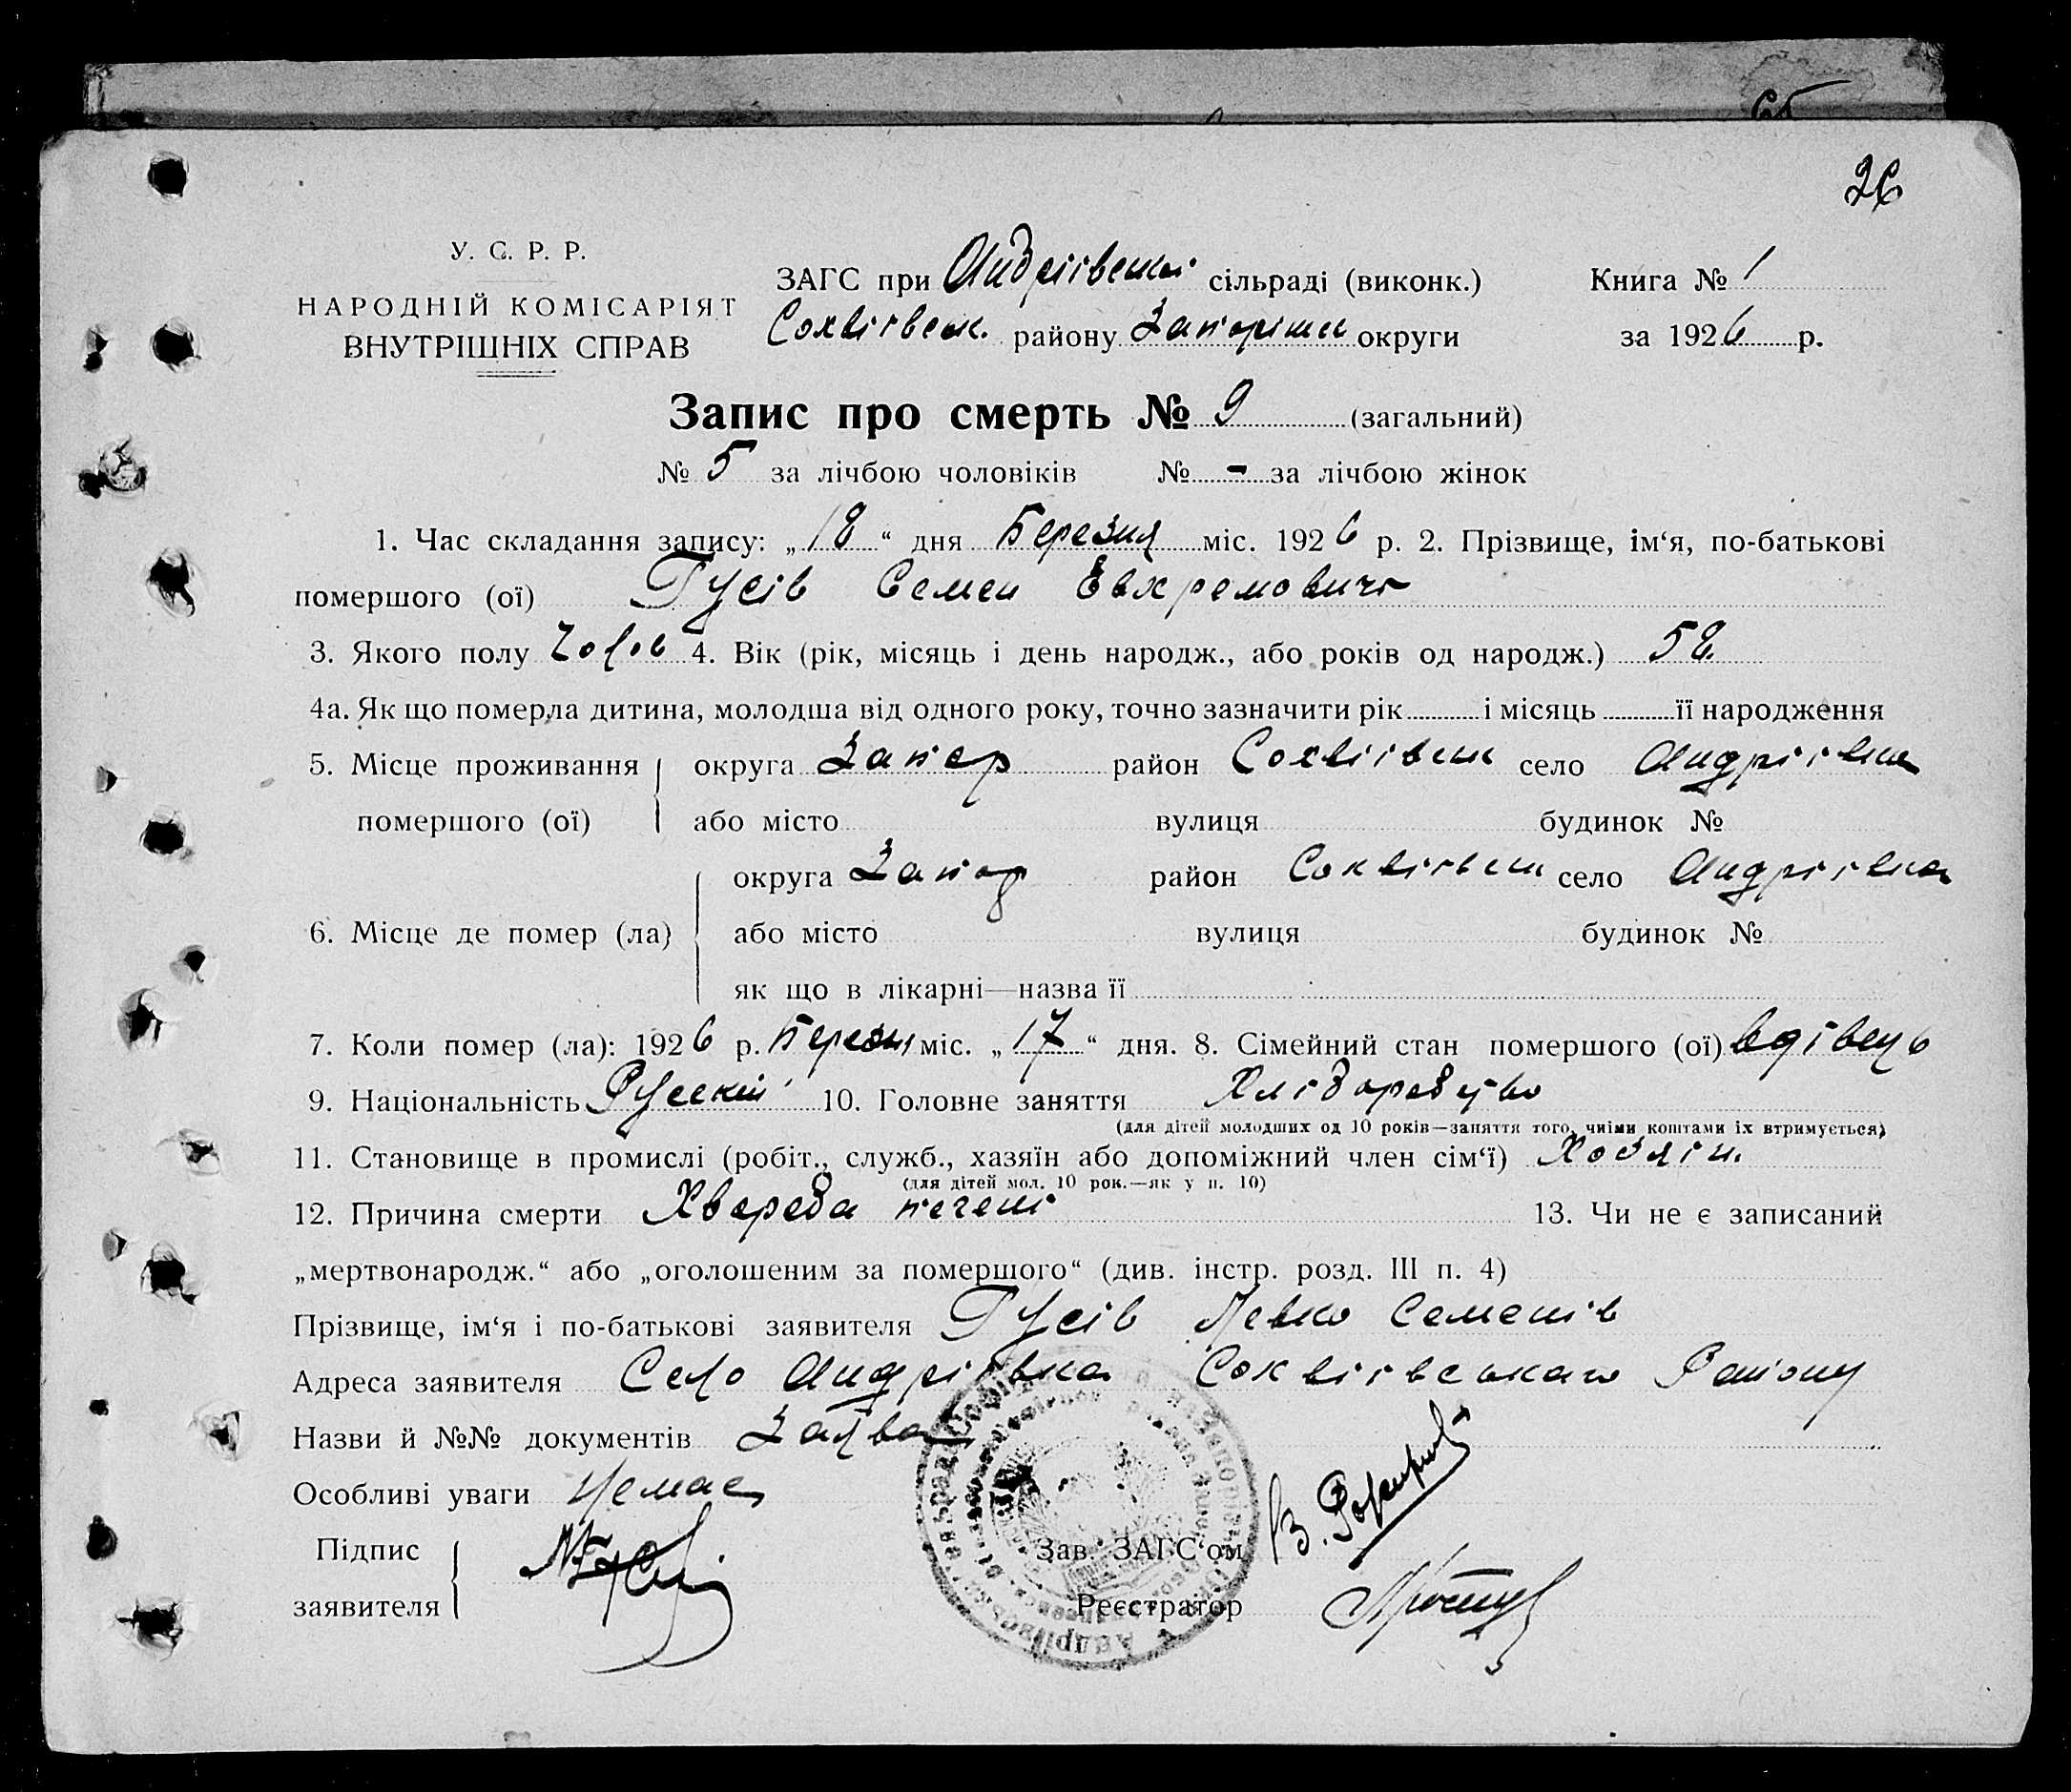 26
У. С. Р. Р.
НАРОДНІЙ КОМІСАРІЯТ
ВНУТРІШНІХ СПРАВ
ЗАГС при Андріївській сільраді (виконк.)
Софіївськ. району Запоріжск округи
Книга № 1
за 1926 р.
Запис про смерть № 9 (загальний)
№ 5 за лічбою чоловіків № - за лічбою жінок
1. Час складання запису: „18“ дня Березня міс. 1926 р. 2. Прізвище, ім‘я, по-батькові
помершого (ої) Гусів Семен Евхремович
3. Якого полу Чолов 4. Вік (рік, місяць і день народж., або років од народж.) 58.
4а. Як що померла дитина, молодша від одного року, точно зазначити рік і місяць її народження
5. Місце проживання помершого (ої) округа Запор район Софіівськ село Андріівка
або місто вулиця будинок №
6. Місце де помер (ла) округа Запор район Софіівськ село Андріівка
або місто вулиця будинок №
як що в лікарні—назва її
7. Коли помер (ла): 1926 р. Березня міс. „17“ дня. 8. Сімейний стан помершого (ої) вдівець
9. Національність Русскій 10. Головне заняття Хліборобство
(для дітей молодших од 10 років—заняття того, чиїми коштами їх втримується)
11. Становище в промислі (робіт., служб., хазяїн або допоміжний член сім‘ї) Хозяін.
(для дітей мол. 10 рок.—як у п. 10)
12. Причина смерти Хвороба печені 13. Чи не є записаний
„мертвонародж.“ або „оголошеним за помершого“ (див. інстр. розд. III п. 4)
Прізвище, ім‘я і по-батькові заявителя Гусів Левко Семенів
Адреса заявителя Село Андріівка Софіівського Району
Назви й №№ документів Заява
Особливі уваги Немае
Підпис заявителя
Зав. ЗАГС‘ом
Реєстратор